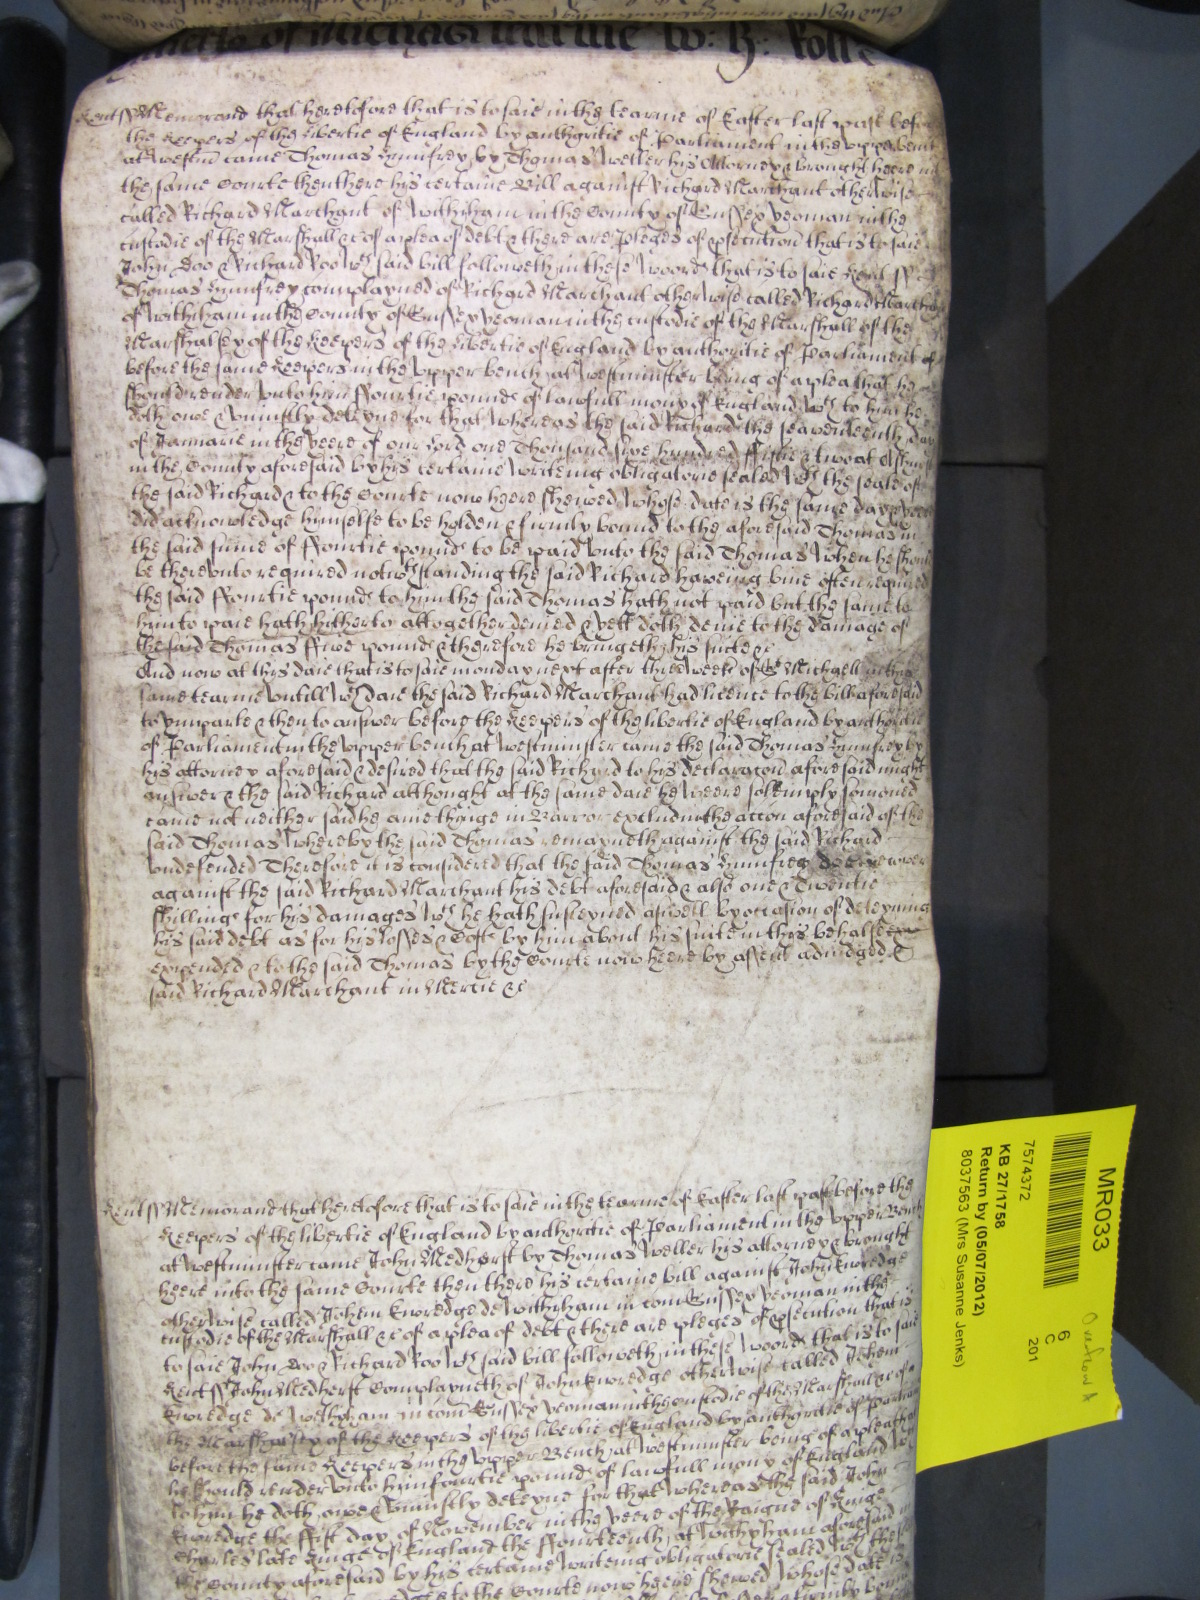 of Michaes terme W: B: Rolle
Kent ss Memorand that heretofore that is to saie in the tearme of Easter last past before
the Keepers of the libertie of England by authoritie of Parliament in the upper bench
at Westmr came Thomas Humfrey by Thomas Weller his Attorney & brought heere into
the same Courte then there his certaine Bill against Richard Marchant otherwise
called Richard Marchant of Withiham in the County of Sussex yeoman in the
custodie of the Marshall &c of a plea of debt & there are pleges of psecution that is to saie
John Doo & Richard Roo wch said bill followeth in these woords that is to saie Kent ss
Thomas Humfrey complayned of Richard Marchant otherwise called Richard Marchant
of Withiham in the County of Sussex yeoman in the custodie of the Marshall of the
Marshalsey of the Keepers of the libertie of England by authoritie of Parliament
before the same Keepers in the upper bench at Westminster being of a plea that he
should render unto him ffourtie pounds of lawfull mony of England wch to him he
doth owe & uniustly deteyne for that whereas the said Richard the seaventeenth day
of Januarie in the yeere of our Lord one Thousand sixe hundred ffiftie & two at
in the County aforesaid by his certaine writeing obligatorie sealed wth the seale of
the said Richard & to the Courte now heere shewed whose date is the same day & yeere
did acknowledge himselfe to be holden & firmly bound to the aforesaid Thomas in
the said sume of ffourtie pounds to be paid unto the said Thomas when he should
be thereunto required notwthstanding the said Richard haveing bine often required
the said ffourtie pounds to him the said Thomas hath not paid but the same to
him to paie hath hitherto alltogether denied & yett doth denie to the damage of
the said Thomas ffive pounds & therefore he bringeth his suite &c
And now at this daie that is to saie monday next after three weeks of St Michaell in this
same tearme untill wch daie the said Richard Marchant had licence to the bill aforesaid
to imparle & then to answer before the Keepers of the libertie of England by authoritie
of Parliament in the upper bench at Westminster came the said Thomas Humfrey by
his attorney aforesaid & desired that the said Richard to his declaracon aforesaid might
answer & the said Richard allthought at the same daie he weere sollemply somoned
came not neither said he anie thinge in Barr or excludinthe accon aforesaid of the
said Thomas whereby the said Thomas remayneth against the said Richard
undefended Therefore it is considered that the said Thomas Humfrey doe recover
against the said Richard Marchant his debt aforesaid & also one & Twentie
shillings for his damages wch he hath susteyned aswell by occasion of deteyning
his said debt as for his losses & Costs by him about his suite in this behalfe
expended & to the said Thomas by the Courte now heere by assent adiudged &
said Richard Marchant in Mercie &c
Kent ss Memorand that heretofore that is to saie in the tearme of Easter last past before the
Keepers of the libertie of England by authoritie of Parliament in the upper Bench
at Westminster came John Medherst by Thomas Weller his attorney & brought
heere into the same Courte then there his certaine bill against John Kweedge
otherwise called Johem Kweedge de Withyham in com Sussex yeoman in the
custodie of the Marshall &c of a plea of debt & there are pleges of psecution that is
to saie John Doo & Richard Roo wch said bill followeth in these woords that is to saie
Kent ss John Medherst Complayneth of John Kweedge otherwise called Johem
Kweedge de Wethyham in com Sussex yeoman in the custodie of the Marshall of
the Marshalsey of the Keepers of the libertie of England by authoritie of parliam
before the same Keepers in the upper Bench at Westminster being of a plea that
he should render unto him fourtie pounds of lawfull mony of England wch
to him he doth owe & uniustly deteyne for that whereas the said John
Kweedge the ffift day of November in the yeere of the Raigne of Kinge
Charles late Kinge of England the ffourteenth at Withyham aforesaid in
the County aforesaid by his certaine writeing obligatorie sealed wth the
to the Courte now heere shewed whose date is
MR033
6
C
201
7574372
KB 27/1758
Return by (05/07/2012)
8037563 (Mrs Susanne Jenks)